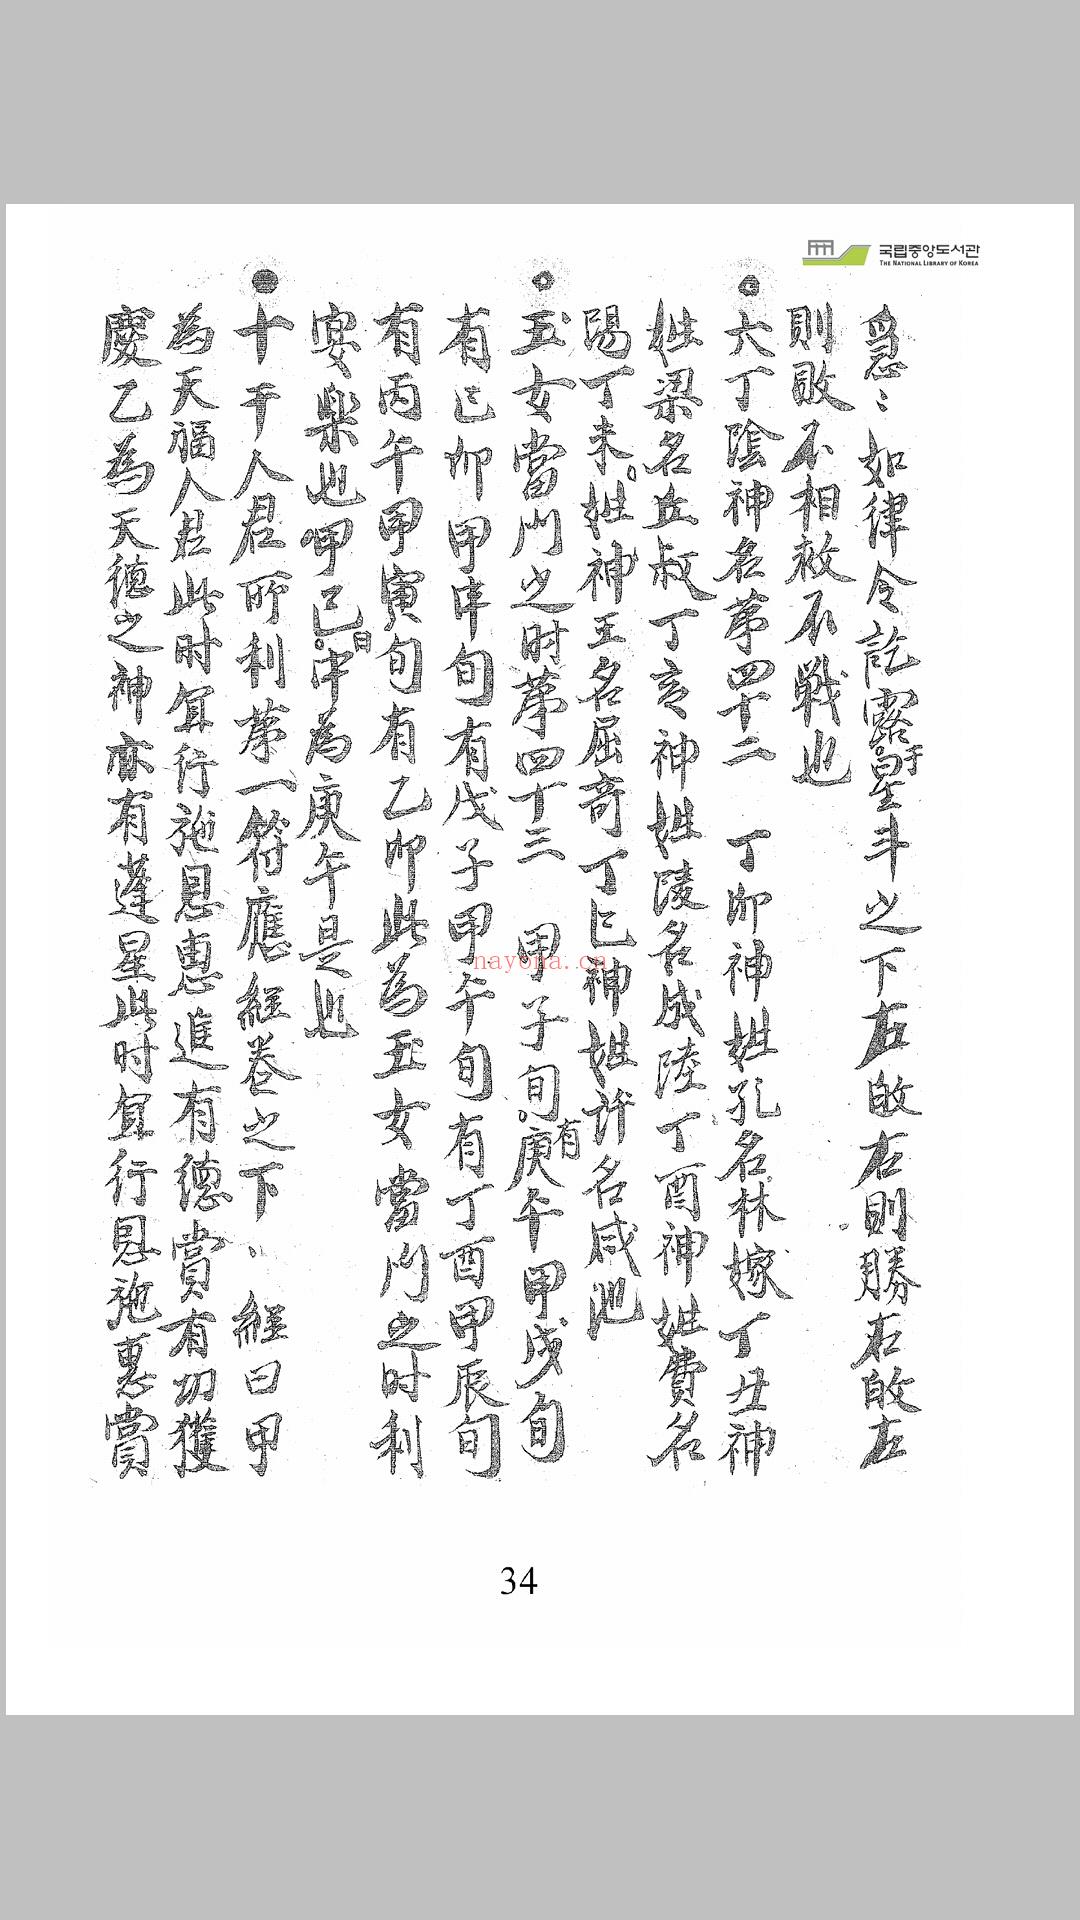 국립중앙도서관
THE NATIONAL LIBRARY OF KOREA
急〻如律令訖露于星斗之下左敗右則勝右敗左
則敗不相救不戰也
六丁陰神名第四十二 丁卯神姓孔名林嫁丁丑神
姓梁名丘叔丁亥神姓陵名成陸丁酉神姓費名
陽丁未姓神王名屈奇丁巳神姓許名咸池
玉女當門之时第四十三 甲子旬有庚午甲戌旬
有己卯甲申旬有戊子甲午旬有丁酉甲辰旬
有丙午甲寅旬有乙卯此為玉女當門之时利
宴樂也甲己日中為庚午是也
十干人君所利第一符應經卷之下、經曰甲
為天福人君此时宜行施恩惠進有德賞有功獲
慶乙為天德之神亦有蓬星此时宜行恩施惠賞
nayona.cn
34